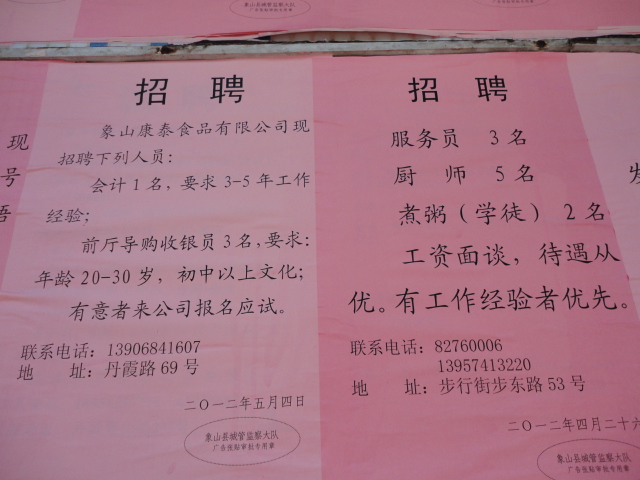 象山县城管监察大队
广告张贴审批专用章
现
号
语
招 聘
象山康泰食品有限公司现
招聘下列人员：
会计1名，要求3-5年工作
经验；
前厅导购收银员3名，要求：
年龄20-30岁，初中以上文化；
有意者来公司报名应试。
联系电话：13906841607
地 址：丹霞路69号
二〇一二年五月四日
象山县城管监察大队
广告张贴审批专用章
招 聘
服务员 3名
厨 师 5名
煮粥（学徒）2名
工资面谈，待遇从
优。有工作经验者优先。
联系电话：82760006
13957413220
地 址：步行街步东路53号
二〇一二年四月二十六
象山县城管监察大队
广告张贴审批专用章
发